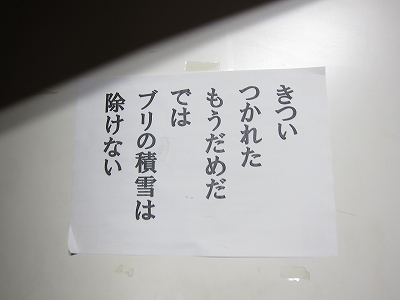 きつい
つかれた
もうだめだ
では
ブリの積雪は
除けない